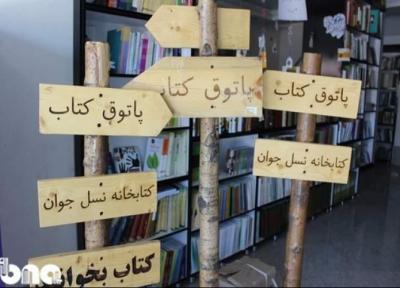 پاتوق کتاب
پاتوق کتاب
پاتوق کتاب
کتابخانه نسل جوان
کتابخانه نسل جوان
کتاب بخوانیم
ibna